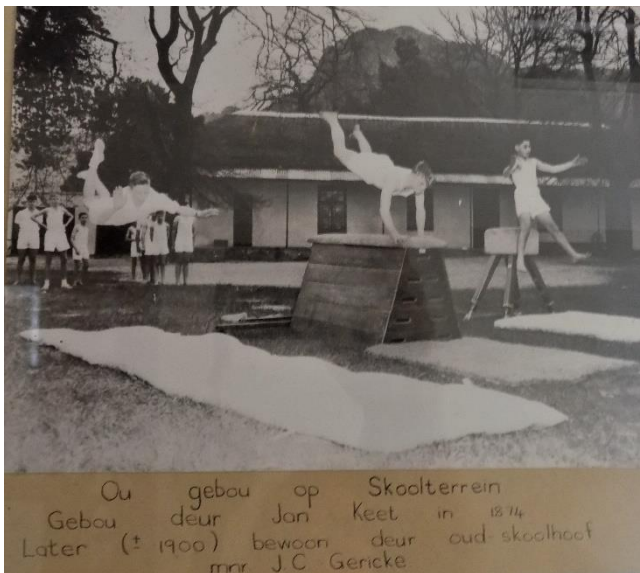 Ou gebou op Skoolterrein
Gebou deur Jan Keet in 1874
Later (± 1900) bewoon deur oud-skoolhoof
mnr J.C Gericke